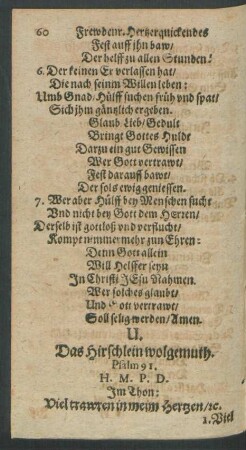 60 Frewdenr. Hertzerquickendes
Fest auff ihn baw/
Der helff zu allen Stunden.
6. Der keinen Er verlassen hat/
Die nach seinm Willen leben:
Umb Gnad/ Hülff suchen früh und spat/
Sich ihm gäntzlich ergeben.
Glaub Lieb/ Gedult
Bringt Gottes Huldt
Darzu ein gut Gewissen
Wer Gott vertrawt/
Fest darauff bawt/
Der sols ewig geniessen.
7. Wer aber Hülff bey Menschen sucht
Vnd nicht bey Gott dem HErren/
Derselb ist gottloß und verflucht/
Kompt nimmer mehr zun Ehren:
Denn Gott allein
Will Helffer seyn
In Christi JEsu Nahmen.
Wer solches glaubt/
Und Gott vertrawt/
Soll selig werden/ Amen.
U.
Das Hirschlein wolgemuth.
Psalm 91.
H. M. P. D.
Im Thon:
Viel trawren in meim Hertzen/ꝛc.
1. Viel